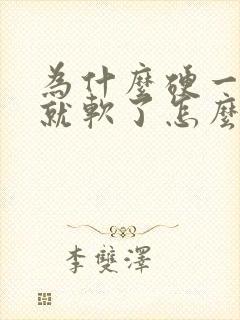 為什麼硬一
就軟了怎麼
李雙澤